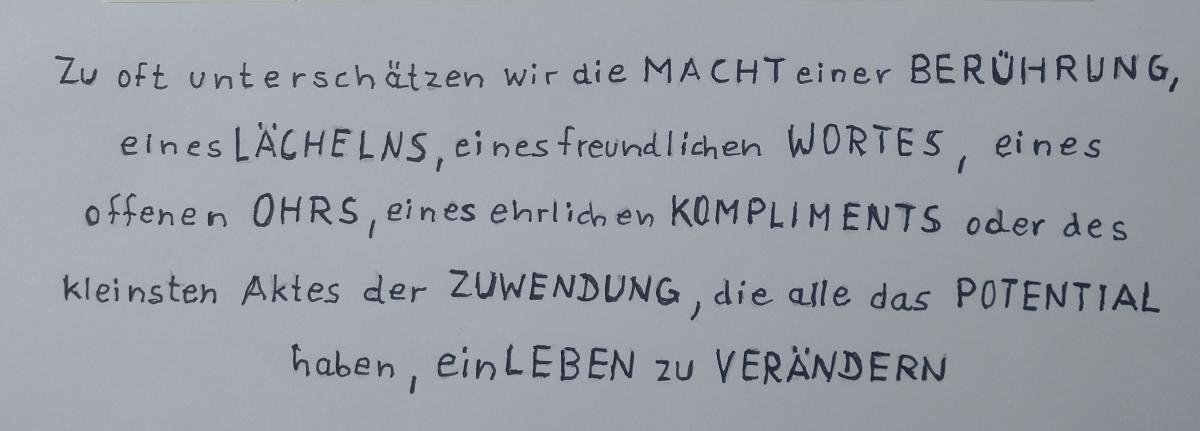 Zu oft unterschätzen wir die MACHT einer BERÜHRUNG,
eines LÄCHELNS, eines freundlichen WORTES, eines
offenen OHRS, eines ehrlichen KOMPLIMENTS oder des
kleinsten Aktes der ZUWENDUNG, die alle das POTENTIAL
haben, ein LEBEN zu VERÄNDERN